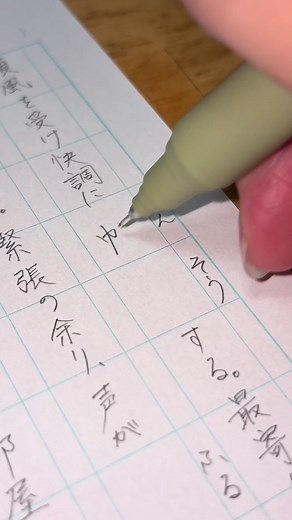 んそう
する。最寄
ふる
風を受け快調に
ゆ
。緊張の余り、声が
屋